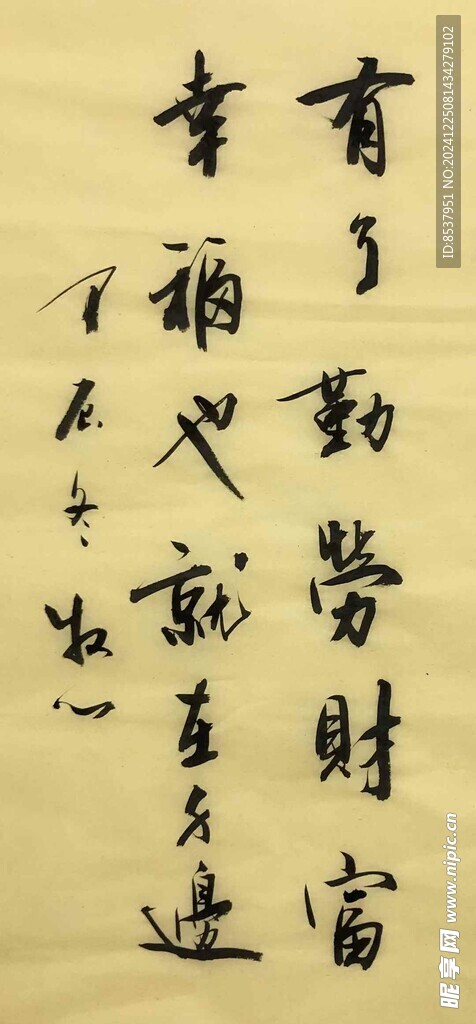 有了勤勞財富
幸福也就在身邊
甲辰冬牧心
ID:8537951 NO:20241225081434279102
昵享网 www.nipic.cn